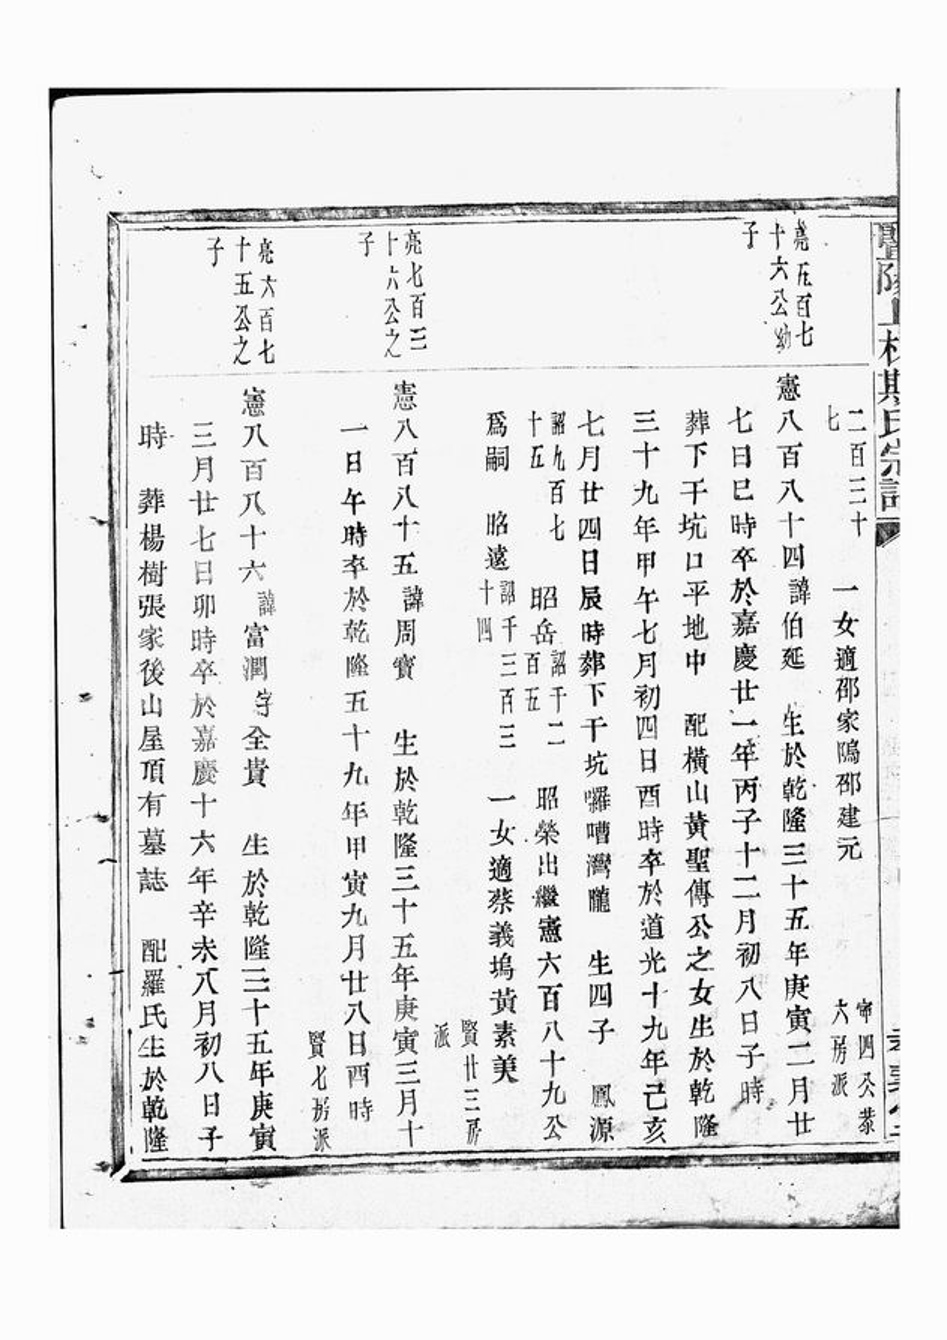 暨陽上林斯氏宗譜
二百三十
七
一女適邵家隝邵建元
六房派
亮五百七
十六公幼
子
憲八百八十四諱伯延 生於乾隆三十五年庚寅二月廿
七日巳時卒於嘉慶廿一年丙子十二月初八日子時
葬下干坑口平地中 配橫山黃聖傳公之女生於乾隆
三十九年甲午七月初四日酉時卒於道光十九年己亥
七月廿四日辰時葬下干坑囉嘈灣隴 生四子 鳳源
詔九百七
十五
昭岳
詔千二
百五
昭榮出繼憲六百八十九公
爲嗣 昭遠
詔千三百三
十四
一女適蔡義塢黃素美
賢廿三房
派
亮七百三
十六公之
子
憲八百八十五諱周寶 生於乾隆三十五年庚寅三月十
一日午時卒於乾隆五十九年甲寅九月廿八日酉時
賢七房派
亮六百七
十五公之
子
憲八百八十六諱富潤字全貴 生於乾隆三十五年庚寅
三月廿七日卯時卒於嘉慶十六年辛未八月初八日子
時 葬楊樹張家後山屋頂有墓誌 配羅氏生於乾隆